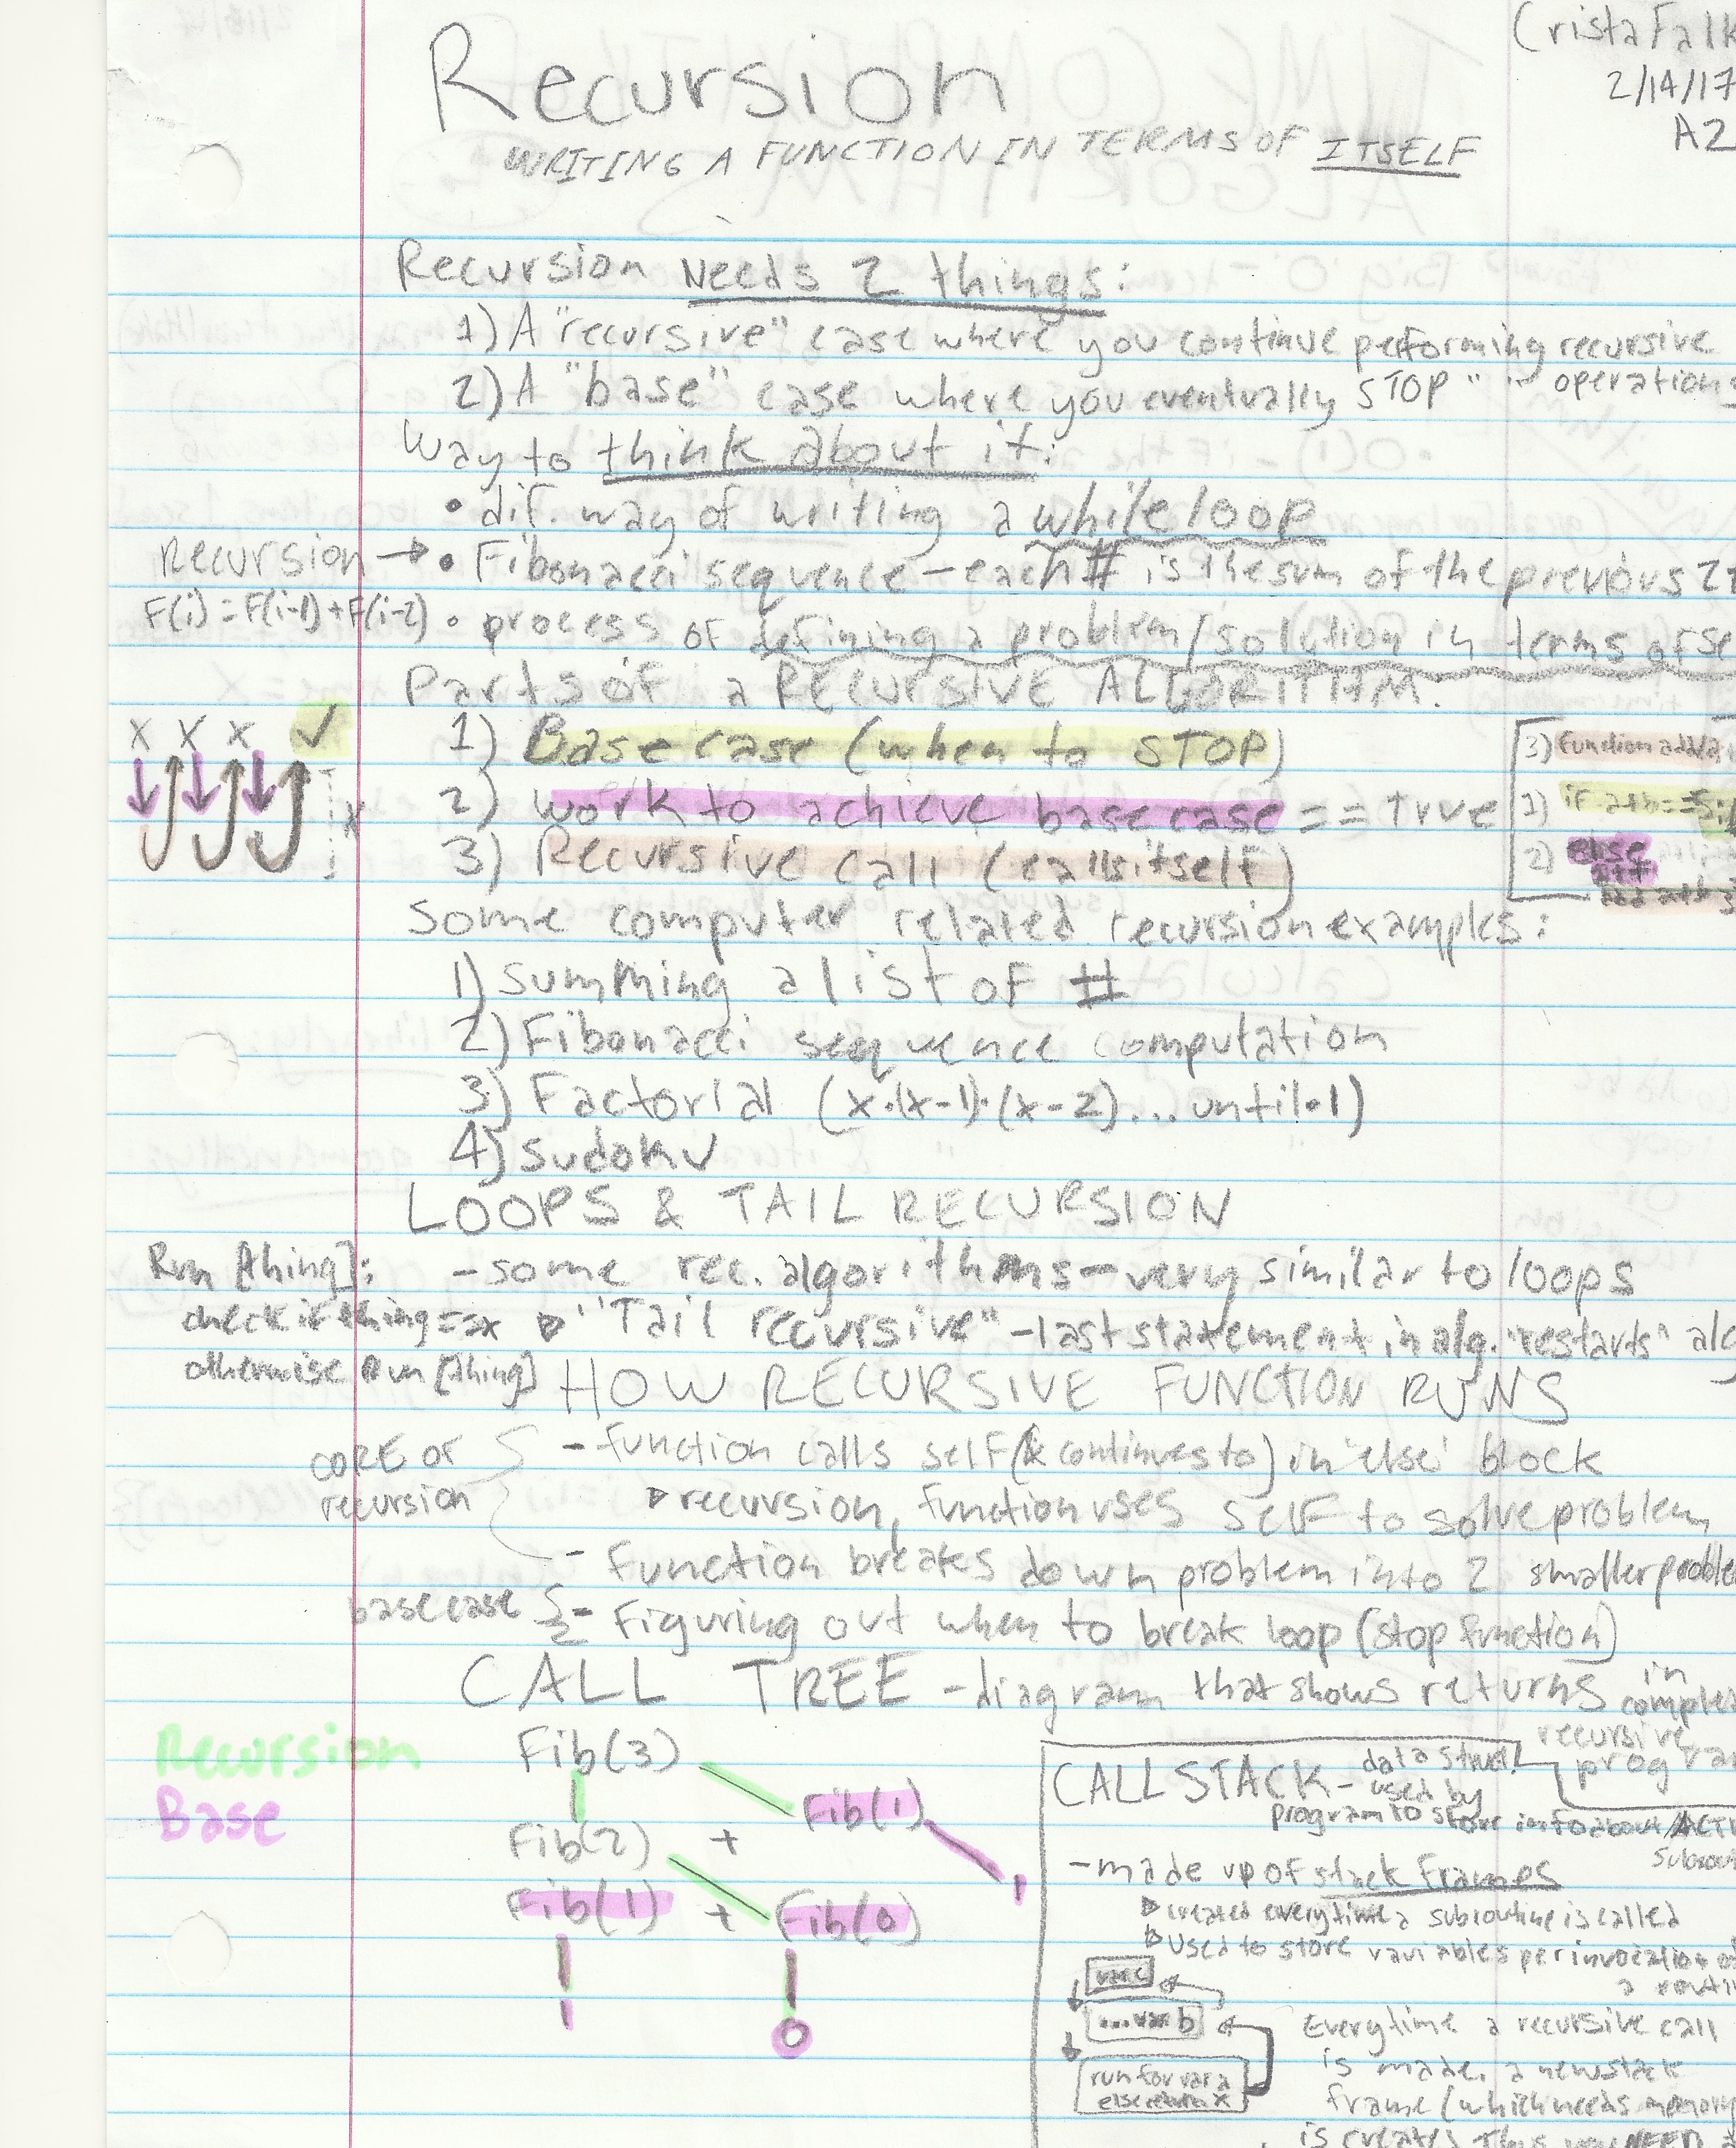 Recursion
Crista Falk
2/14/17
A2
WRITING A FUNCTION IN TERMS OF ITSELF
Recursion Needs 2 things:
1) A "recursive" case where you continue performing recursive
2) A "base" case where you eventually STOP " " operations
Way to think about it:
• dif. way of writing a while loop
Recursion → • Fibonacci sequence - each # is the sum of the previous 2
F(i) = F(i-1) + F(i-2) • process of defining a problem/solution in terms of se
Parts of a RECURSIVE ALGORITHM.
X X X ✓
1) Base case (when to STOP)
2) work to achieve base case == true
3) Recursive call (calls itself)
3) Function add
1) if a+b==5
2) else
Some computer related recursion examples:
1) Summing a list of #
2) Fibonacci sequence computation
3) Factorial (x·(x-1)·(x-2)... until·1)
4) Sudoku
LOOPS & TAIL RECURSION
Run [thing]: - some rec. algorithms - very similar to loops
check if thing = x
"Tail recursive" - last statement in alg. "restarts" alg
otherwise Run [thing]
HOW RECURSIVE FUNCTION RUNS
CORE OF recursion
- function calls self (& continues to) in 'else' block
recursion, function uses self to solve problem
- function breaks down problem into 2 smaller proble
base case - Figuring out when to break loop (stop function)
CALL TREE - diagram that shows returns in comple
recursive progra
Recursion
Base
Fib(3)
Fib(2) + Fib(1)
Fib(1) + Fib(0)
1
1
0
CALL STACK - data struct. used by
program to store info about ACTI
subrout
- made up of stack frames
created everytime a subroutine is called
Used to store variables per invocation of
a routi
var c
...var b
run for var a
else return x
Everytime a recursive call
is made, a new stack
frame (which needs memory
is created. Thus you NEED